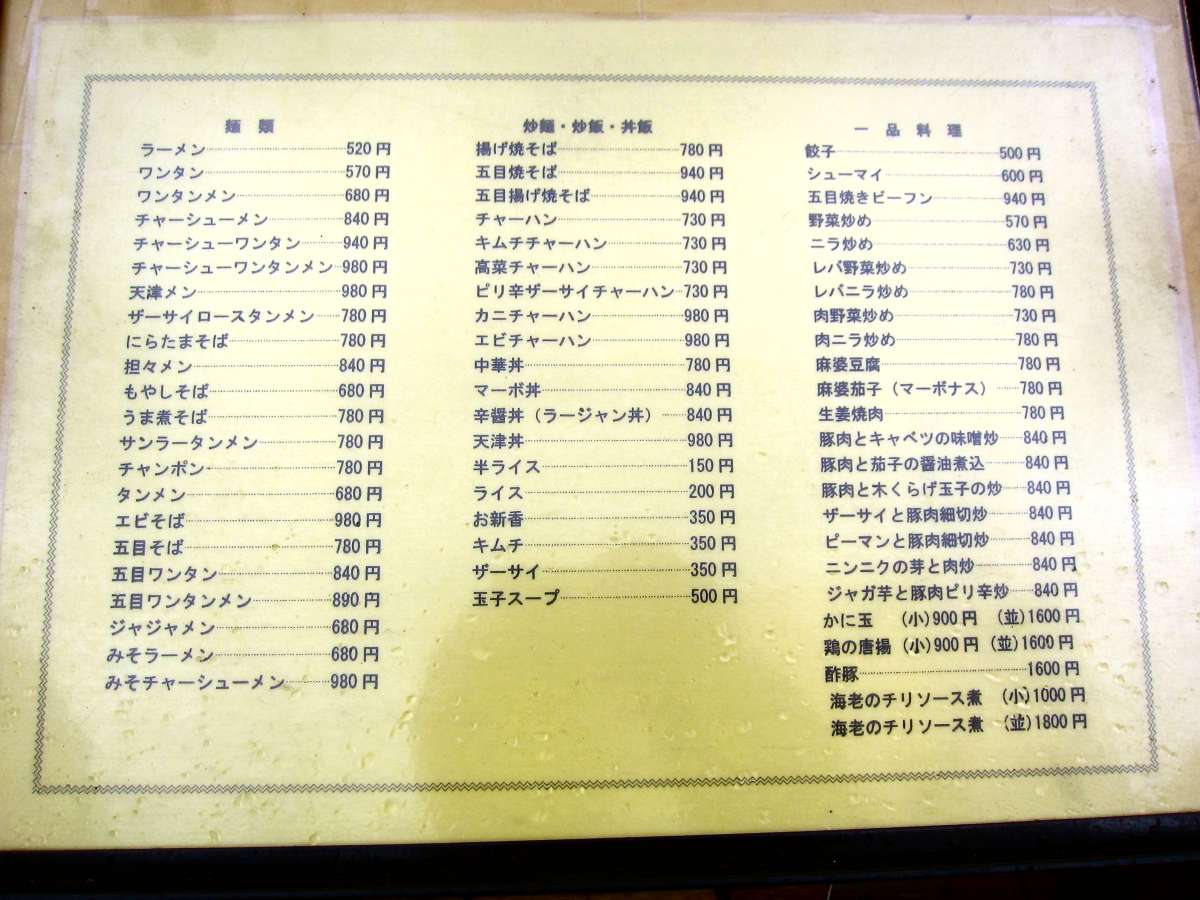 麺 類
ラーメン 520円
ワンタン 570円
ワンタンメン 680円
チャーシューメン 840円
チャーシューワンタン 940円
チャーシューワンタンメン 980円
天津メン 980円
ザーサイロースタンメン 780円
にらたまそば 780円
担々メン 840円
もやしそば 680円
うま煮そば 780円
サンラータンメン 780円
チャンポン 780円
タンメン 680円
エビそば 980円
五目そば 780円
五目ワンタン 840円
五目ワンタンメン 890円
ジャジャメン 680円
みそラーメン 680円
みそチャーシューメン 980円
炒麺・炒飯・丼飯
揚げ焼そば 780円
五目焼そば 940円
五目揚げ焼そば 940円
チャーハン 730円
キムチチャーハン 730円
高菜チャーハン 730円
ピリ辛ザーサイチャーハン 730円
カニチャーハン 980円
エビチャーハン 980円
中華丼 780円
マーボ丼 840円
辛醤丼（ラージャン丼） 840円
天津丼 980円
半ライス 150円
ライス 200円
お新香 350円
キムチ 350円
ザーサイ 350円
玉子スープ 500円
一 品 料 理
餃子 500円
シューマイ 600円
五目焼きビーフン 940円
野菜炒め 570円
ニラ炒め 630円
レバ野菜炒め 730円
レバニラ炒め 780円
肉野菜炒め 730円
肉ニラ炒め 780円
麻婆豆腐 780円
麻婆茄子（マーボナス） 780円
生姜焼肉 780円
豚肉とキャベツの味噌炒 840円
豚肉と茄子の醤油煮込 840円
豚肉と木くらげ玉子の炒 840円
ザーサイと豚肉細切炒 840円
ピーマンと豚肉細切炒 840円
ニンニクの芽と肉炒 840円
ジャガ芋と豚肉ピリ辛炒 840円
かに玉 （小）900円 （並）1600円
鶏の唐揚（小）900円（並）1600円
酢豚 1600円
海老のチリソース煮 （小）1000円
海老のチリソース煮 （並）1800円